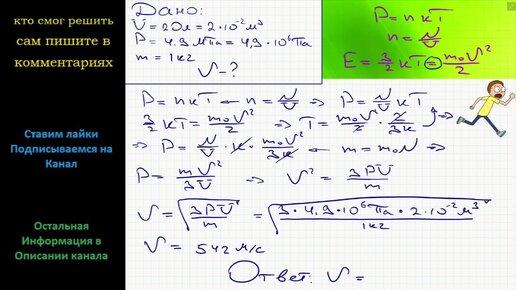 кто смог решить
сам пишите в
комментариях
Ставим лайки
Подписываемся на
Канал
Остальная
Информация в
Описании канала
Дано:
V = 20л = 2·10⁻²м³
P = 4.9МПа = 4,9·10⁶Па
m = 1кг
v - ?
P = nкT
n = N/V
E = 3/2 кT = m₀v²/2
P = nкT ← n = N/V ⇒ P = N/V кT
3/2 кT = m₀v²/2 ⇒ T = m₀v²/2 · 2/3к
⇒ P = N/V · к · m₀v²/3к ← m = m₀N
P = mv²/3V ⇒ v² = 3PV/m
v = √(3PV/m) = √(3·4.9·10⁶Па·2·10⁻²м³/1кг)
v = 542 м/с
Ответ: v =